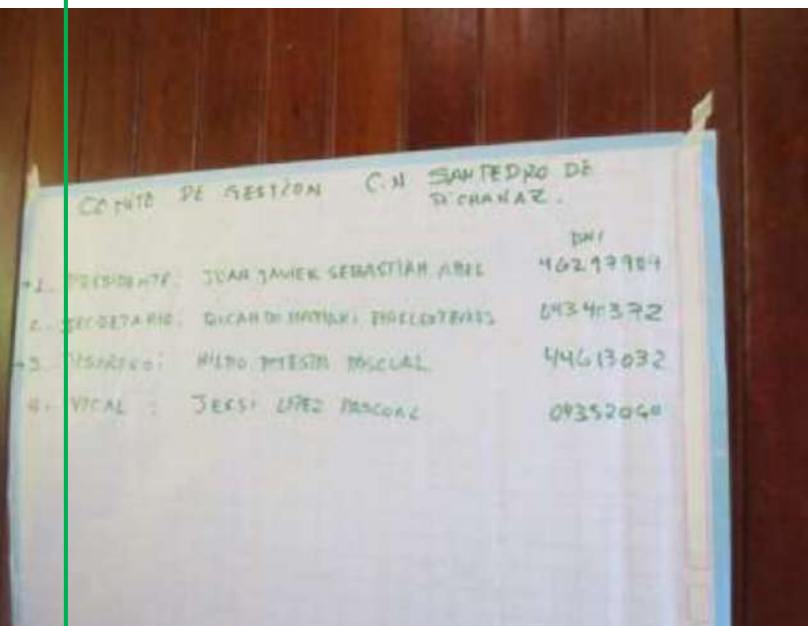 COMITE DE GESTION C.N SAN PEDRO DE
PICHANAZ.
DNI
1. PRESIDENTE: JUAN JAVIER SEBASTIAN ABEL 46297909
2. SECRETARIO: RICARDO 04340372
3. HILDO PASCUAL 44613032
4. VOCAL : JERSI LOPEZ PASCUAL 04352040